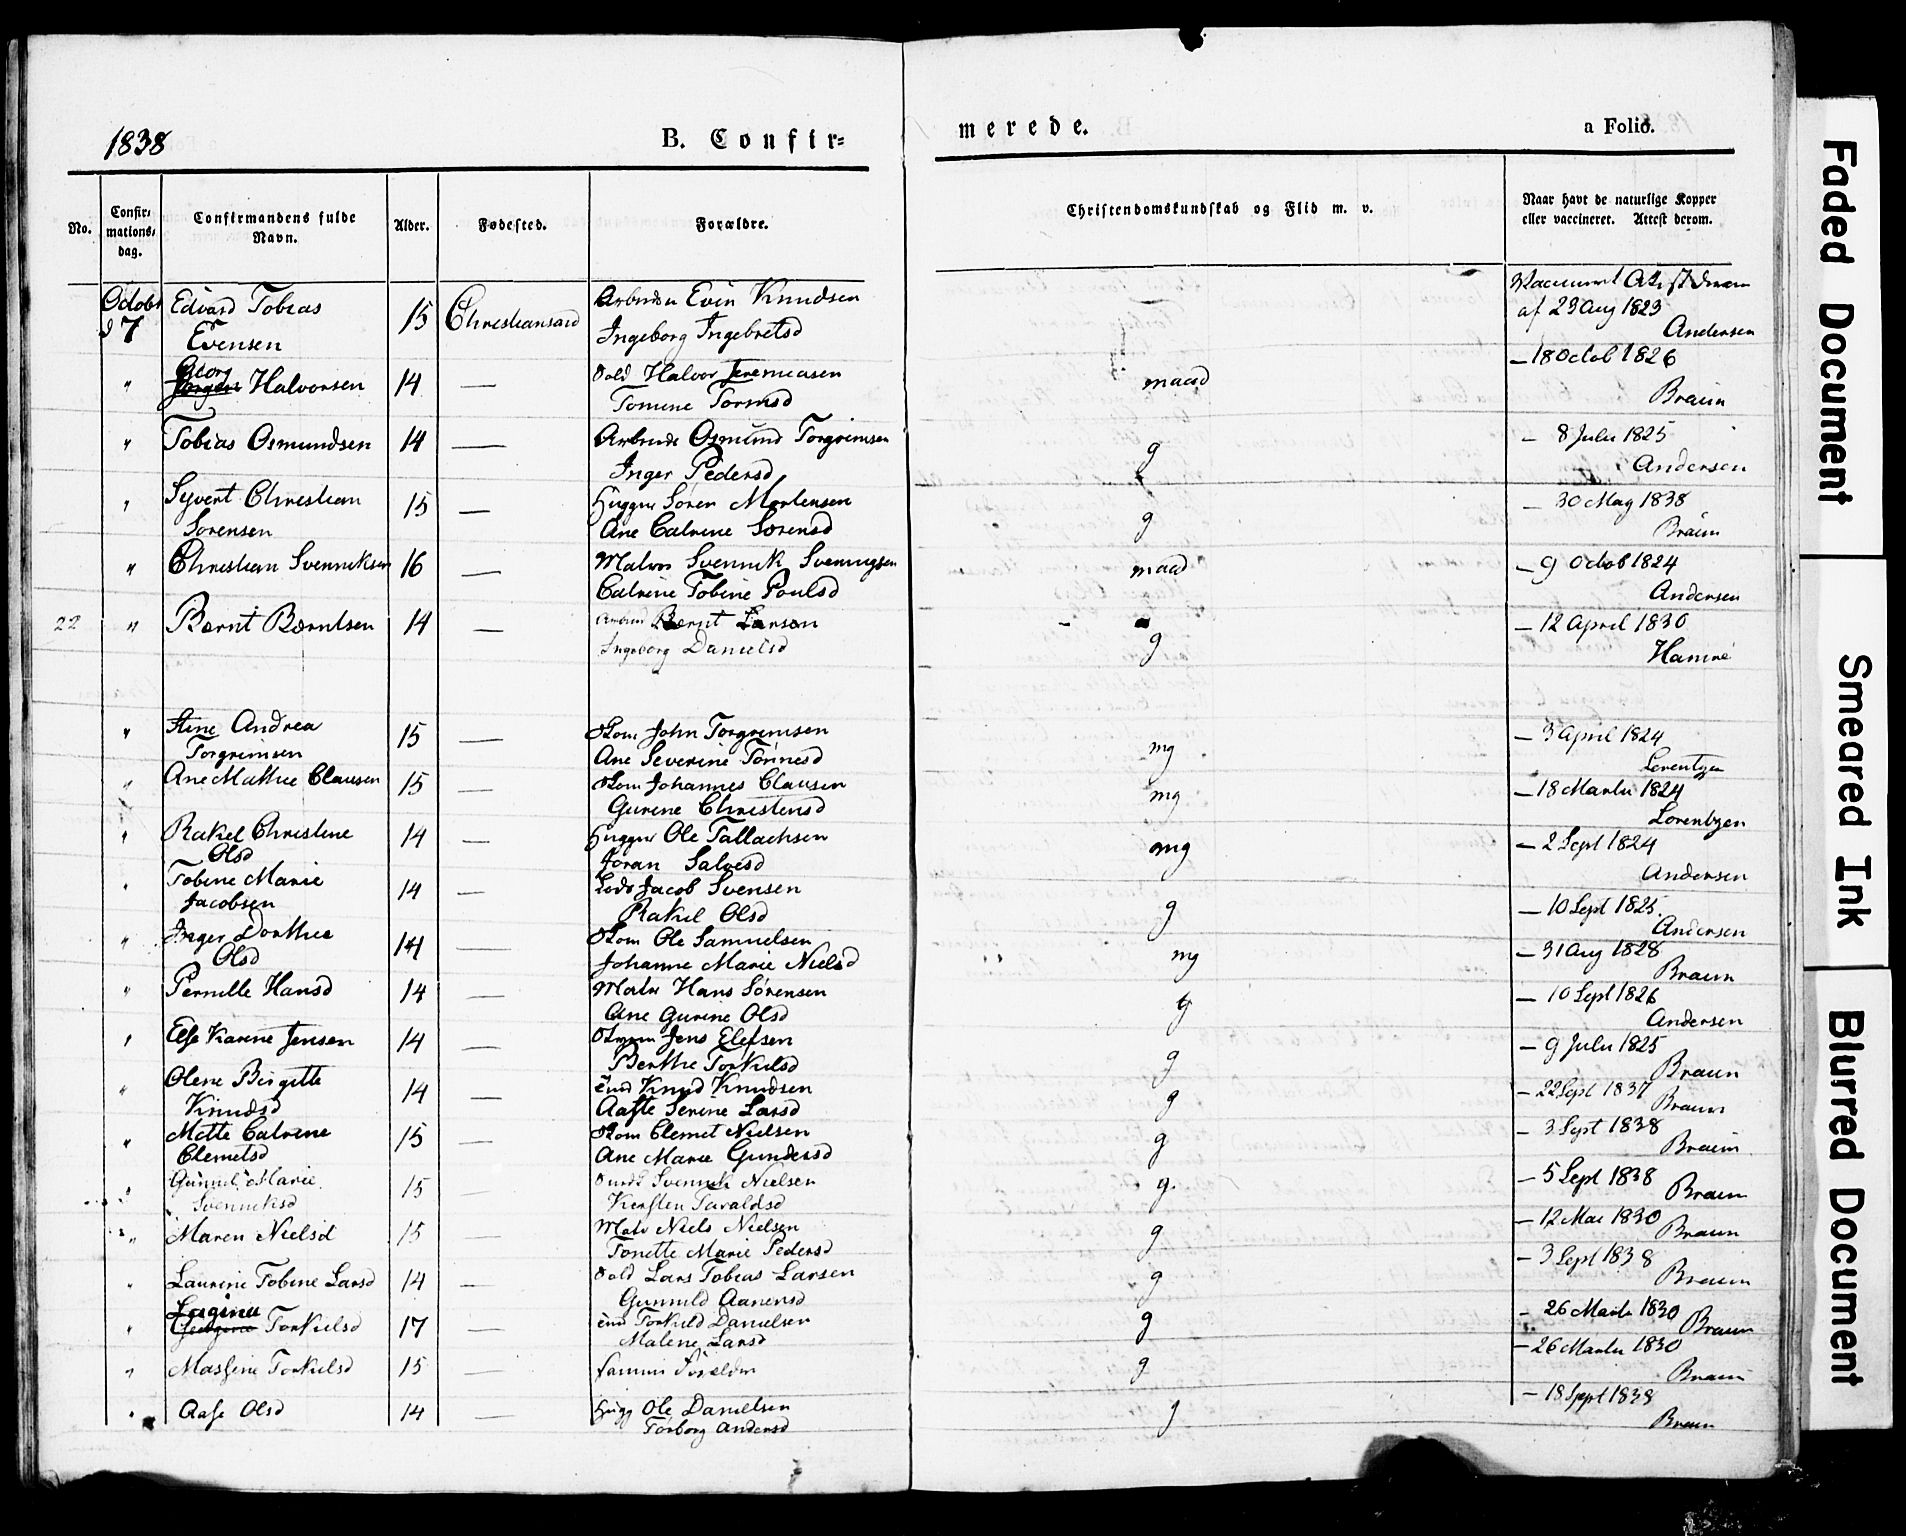 1838
B. Confir=
merede.
a Folio.
No.
Confir=
mations=
dag.
Confirmandens fulde
Navn.
Alder.
Fødested.
Forældre.
Christendomskundskab og Flid m. v.
Naar havt de naturlige Kopper
eller vaccineret. Attest derom.
Octobr d 7 Edvard Tobias Evensen 15 Christiansand
Even Knudsen
Ingeborg Ingebretsd
af 23 Aug 1823
Andersen
" Georg Halvorsen 14 —
Sold Halvor Jeremiasen
Tomine
maad
— 18 Octob 1826
Braun
" Tobias Osmundsen 14 —
Osmund Torgrimsen
Inger Pedersd
g
— 8 Juli 1825
Andersen
" Syvert Christian Sorensen 15 —
Søren Mortensen
Ane Catrine Sorensd
g
— 30 May 1838
Braun
" Christian Svenniksen 16 —
Matros Svennik Svennigsen
Catrine Tobine Poulsd
maad
— 9 Octob 1824
Andersen
22 " Bernt Berntsen 14 —
Bernt Larsen
Ingeborg Danielsd
g
— 12 April 1830
" Stine Andrea Torgrimsen 15 —
John Torgrimsen
Ane Severine Tönnesd
mg
— 3 April 1824
Lorentzen
" Ane Mathie Clausen 15 —
Johannes Clausen
Gurine Christensd
mg
— 18 Martii 1824
Lorentzen
" Rakel Christine Olsd 14 —
Ole Tallachsen
Joran Salvesd
mg
— 2 Sept 1824
Andersen
" Tobine Marie Jacobsen 14 —
Lods Jacob Svensen
Rakel Olsd
g
— 10 Sept 1825
Andersen
" Inger Dorthie Olsd 14 —
Ole Samuelsen
Johanne Marie Nielsd
mg
— 31 Aug 1828
Braun
" Pernille Hansd 14 —
Hans Sörensen
Ane Gurine Olsd
g
— 10 Sept 1826
Andersen
" Else Karine Jensen 14 —
Jens Elefsen
Berthe Torkilsd
g
— 9 Juli 1825
Braun
" Olene Birgitte Knudsd 14 —
Knud Knudsen
Aaste Serine Larsd
g
— 22 Sept 1837
Braun
" Mette Catrine Clemetsd 15 —
Clemet Nielsen
Ane Marie Gundersd
g
— 3 Sept 1838
Braun
" Gunnil Marie Svenniksd 15 —
Svennik Nielsen
Kirsten Taraldsd
g
— 5 Sept 1838
Braun
" Maren Nielsd 15 —
Matr Niels Nielsen
Tonette Marie Pedersd
g
— 12 Mai 1830
Braun
" Laurine Tobine Larsd 14 —
Sold Lars Tobias Larsen
Gunnild Aanensd
g
— 3 Sept 1838
Braun
" Torkilsd 17 —
Torkild Danielsen
Malene Larsd
g
— 26 Martii 1830
Braun
" Massine Torkilsd 15 —
g
— 26 Martii 1830
Braun
" Aase Olsd 14 —
Ole Danielsen
Torborg Andersd
g
— 18 Sept 1838
Braun
Faded Document
Smeared Ink
Blurred Document